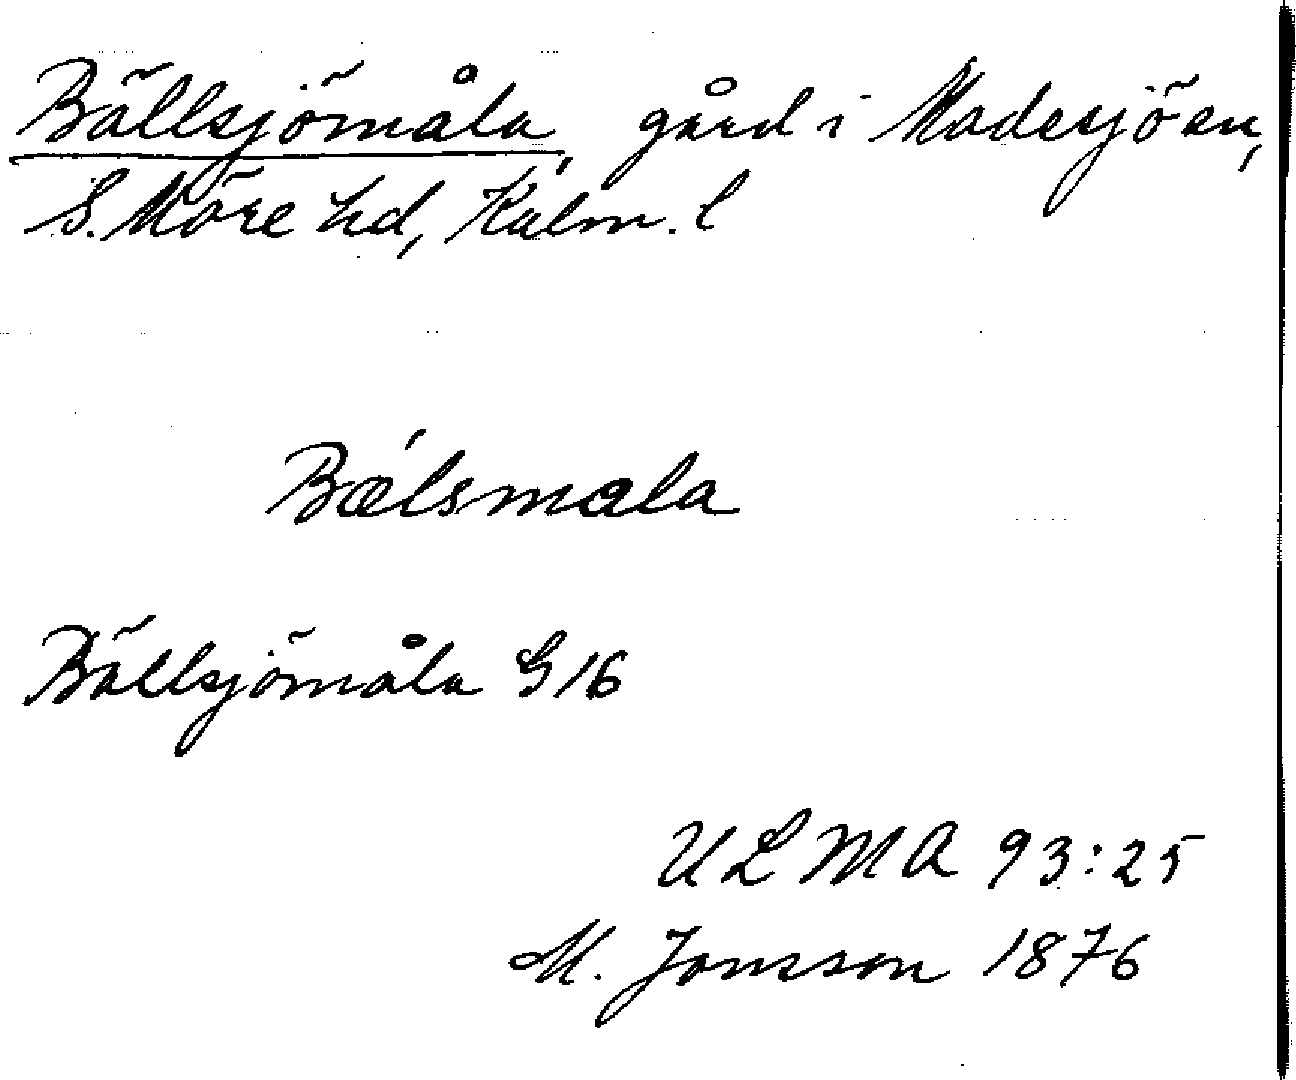 Bällsjömåla, gård i Madesjö sn,
S. Möre hd, Kalm. l
Bǽlsmala
Bällsjömåla G 16
ULMA 93:25
M. Jonsson 1876